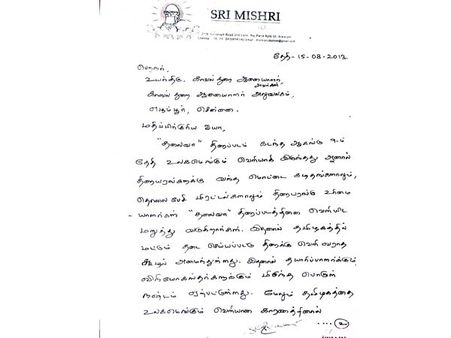 SRI MISHRI
தேதி - 15-08-2013
பெறுநர்,
உயர்திரு. காவல்துறை ஆணையாளர் அவர்கள்
காவல் துறை ஆணையாளர் அலுவலகம்,
எழும்பூர், சென்னை.
மதிப்பிற்குரிய ஐயா,
"தலைவா" திரைப்படம் கடந்த ஆகஸ்ட் 9ம்
தேதி உலகமெங்கும் வெளியாக இருந்தது ஆனால்
திரையரங்குகளுக்கு வந்த மொட்டை கடிதங்களாலும்,
தொலைபேசி மிரட்டல்களாலும் திரையரங்கு உரிமை
யாளர்கள் "தலைவா" திரைப்படத்தினை வெளியிட
மறுத்து வருகிறார்கள். இதனால் தமிழகத்தில்
மட்டும் தடை செய்யப்பட்டு திரைக்கு வெளி வராத
சூழல் அமைந்துள்ளது. இதனால் தயாரிப்பாளர்க்கும்
வினியோகஸ்தர்களுக்கும் மிகுந்த பொருள்
நஷ்டம் ஏற்பட்டுள்ளது. மேலும் தமிழகத்தை
உலகமெங்கும் வெளியான காரணத்தினால்
....②